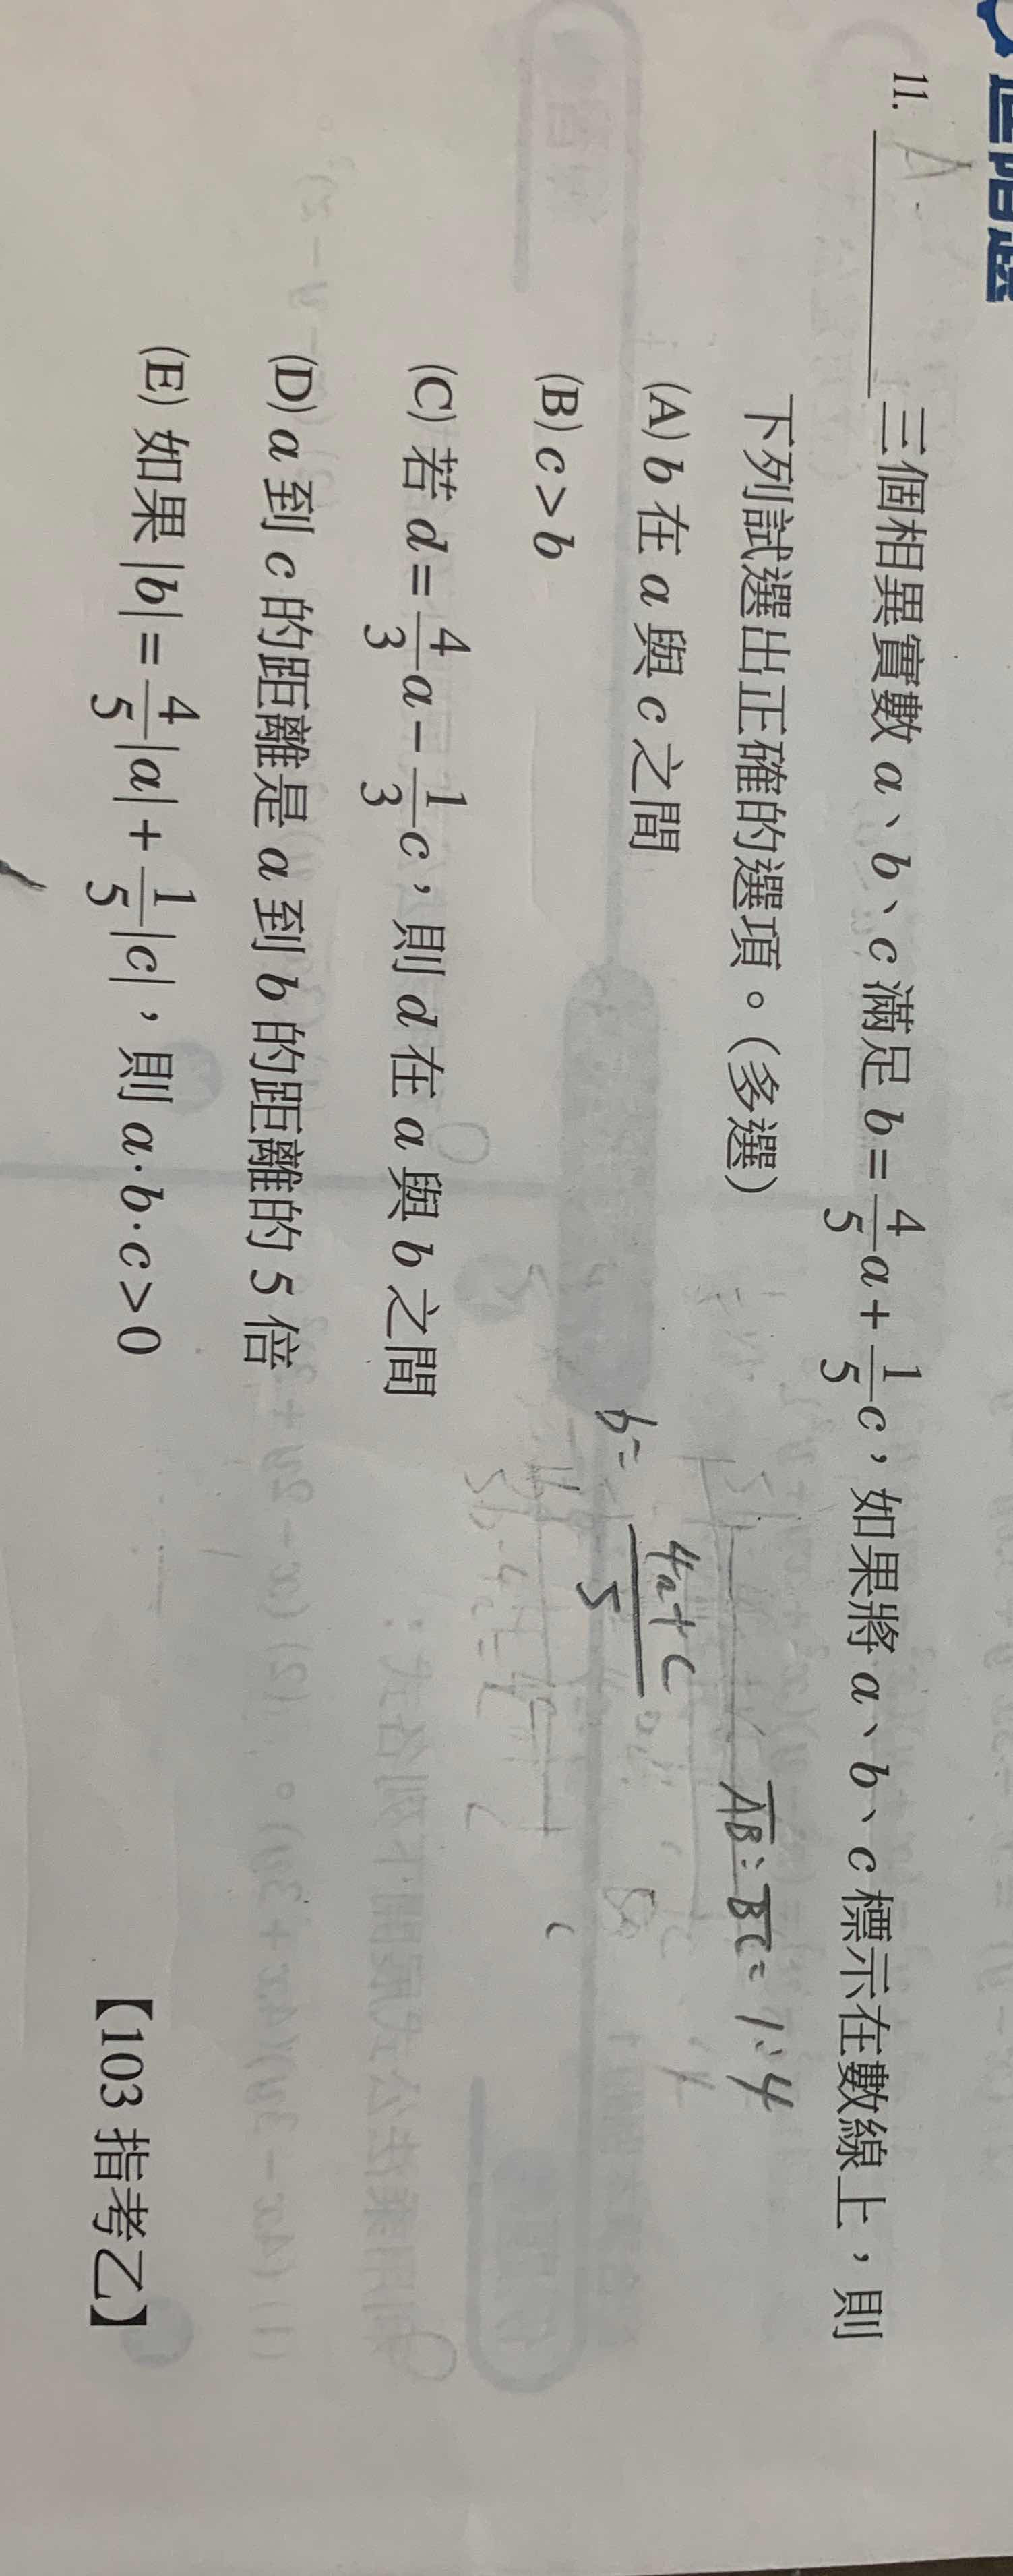 進階題
11. A 三個相異實數 a、b、c 滿足 b=4/5a+1/5c，如果將 a、b、c 標示在數線上，則
下列試選出正確的選項。(多選)
AB:BC=1:4
(A) b 在 a 與 c 之間
b= 4a+c/5
(B) c>b
(C) 若 d=4/3a-1/3c，則 d 在 a 與 b 之間
(D) a 到 c 的距離是 a 到 b 的距離的 5 倍
(E) 如果 |b|=4/5|a|+1/5|c|，則 a·b·c>0
【103 指考乙】